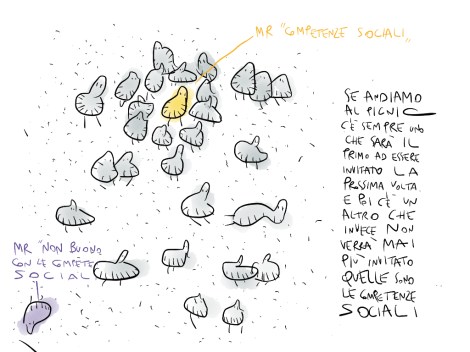 MR "COMPETENZE SOCIALI"
SE ANDIAMO
AL PIGNIC
C'È SEMPRE UNO
CHE SARÀ IL
PRIMO AD ESSERE
INVITATO LA
PROSSIMA VOLTA
E POI C'È UN
ALTRO CHE
INVECE NON
VERRÀ MAI
PIÙ INVITATO
QUELLE SONO
LE COMPETENZE
SOCIALI
MR "NON BUONO
CON LE COMPETE
SOCIAL